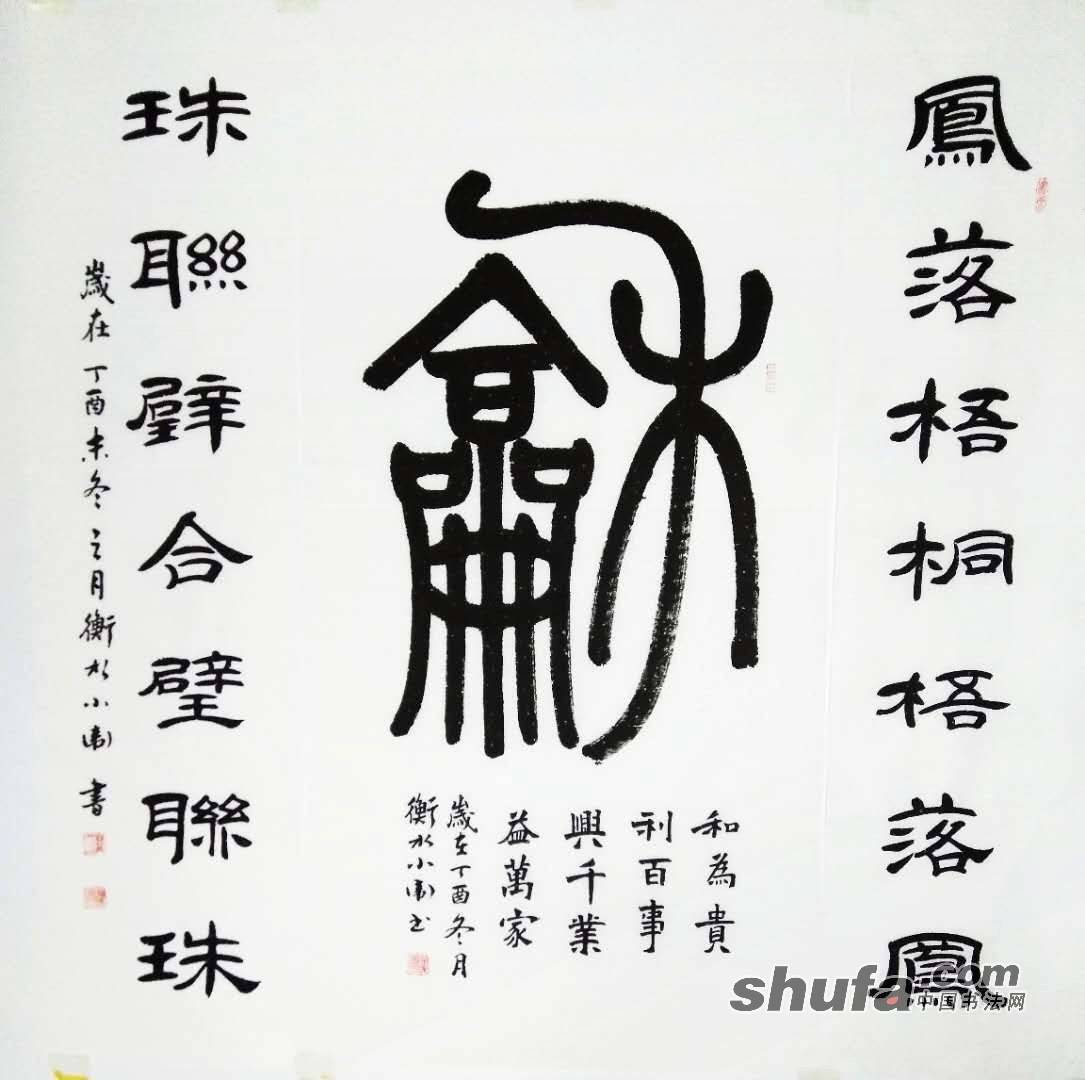 鳳落梧桐梧落鳳
龢
和為貴
利百事
興千業
益萬家
歲在丁酉冬月
衡水小衛书
珠聯璧合璧聯珠
歲在丁酉末冬之月衡水小衛書
shufa.com
中国书法网